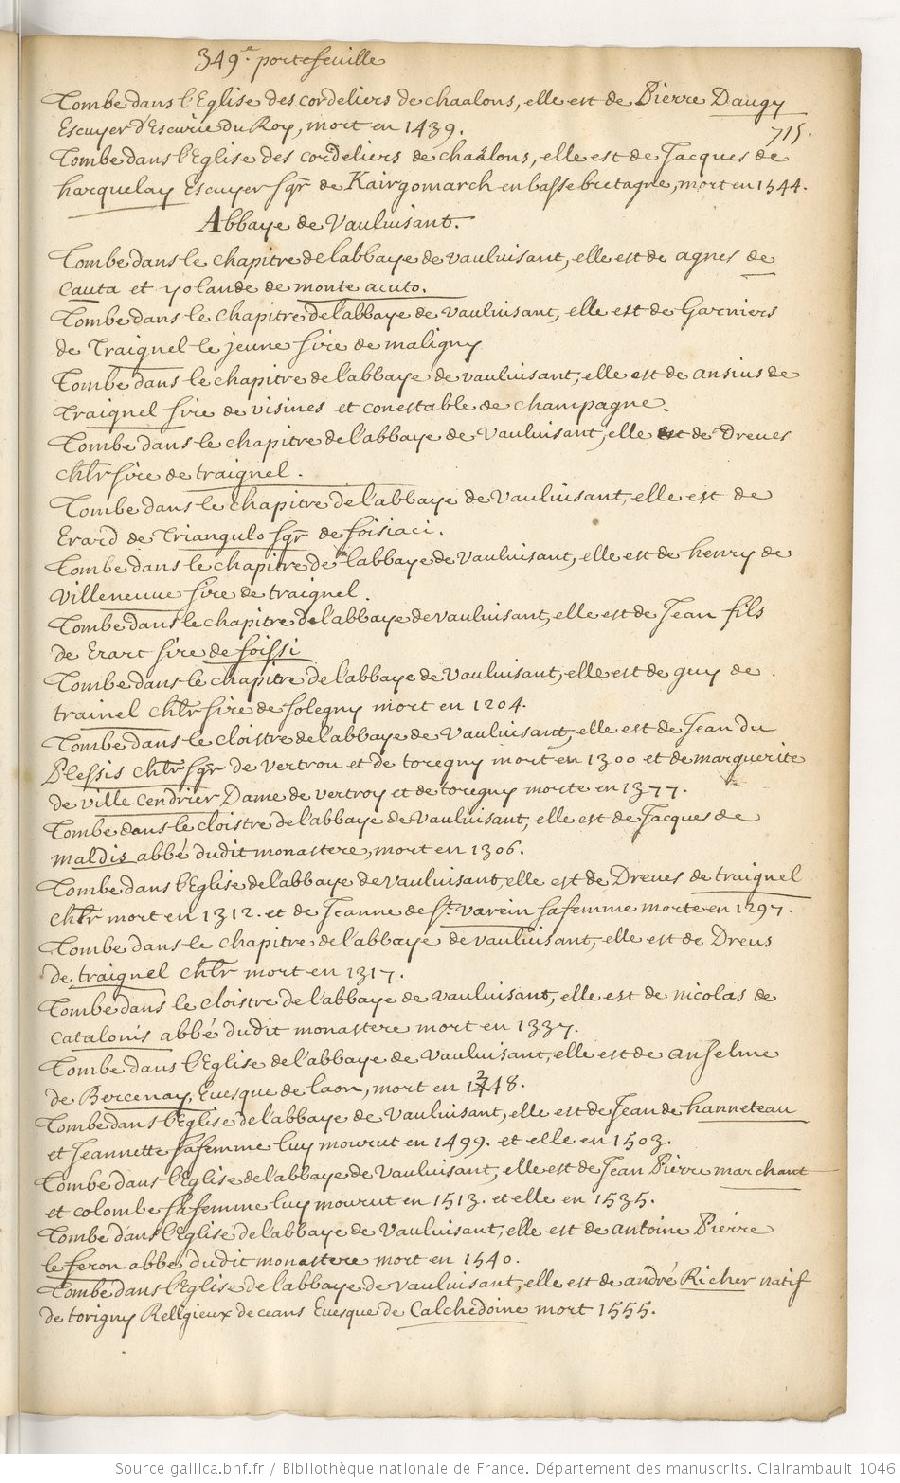 349.e portefeuille
Tombe dans l'Eglise des cordeliers de chaalons, elle est de Pierre Daugy
715.
Escuyer d'Escurie du Roy, mort en 1439.
Tombe dans l'Eglise des cordeliers de chaalons, elle est de Jacques de
harquelay Escuyer sgr de Kairgomarch en basse bretagne, mort en 1544.
Abbaye de Vauluisant.
Tombe dans le chapitre de l'abbaye de vauluisant, elle est de agnes de
Cauta et yolande de monte acuto.
Tombe dans le chapitre de l'abbaye de vauluisant, elle est de Garniers
de Traignel le jeune sire de maligny
Tombe dans le chapitre de l'abbaye de vauluisant, elle est de ansius de
Traignel sire de visines et conestable de champagne.
Tombe dans le chapitre de l'abbaye de vauluisant, elle est de Dreues
chlr sire de traignel.
Tombe dans le chapitre de l'abbaye de vauluisant, elle est de
Erard de Triangulo sgr de foisiaci.
Tombe dans le chapitre de l'abbaye de vauluisant, elle est de henry de
Villeneuue sire de traignel.
Tombe dans le chapitre de l'abbaye de vauluisant, elle est de Jean fils
de Erart sire de foissi
Tombe dans le chapitre de l'abbaye de vauluisant, elle est de guy de
trainel chlr sire de solegny mort en 1204.
Tombe dans le cloistre de l'abbaye de vauluisant, elle est de Jean du
Plessis chlr sgr de vertrou et de toregny mort en 1300 et de marguerite
de ville cendrier Dame de vertroy et de toregny morte en 1377.
Tombe dans le cloistre de l'abbaye de vauluisant, elle est de Jacques de
maldis abbé dudit monastere, mort en 1306.
Tombe dans l'Eglise de l'abbaye de vauluisant, elle est de Dreues de traignel
chlr mort en 1312. et de Jeanne de st. varein sa femme morte en 1297.
Tombe dans le chapitre de l'abbaye de vauluisant, elle est de Dreus
de traignel chlr mort en 1317.
Tombe dans le cloistre de l'abbaye de vauluisant, elle est de nicolas de
Catalonis abbé dudit monastere mort en 1337.
Tombe dans l'Eglise de l'abbaye de vauluisant, elle est de anselme
de Bercenay, Euesque de laon, mort en 1248.
Tombe dans l'Eglise de l'abbaye de vauluisant, elle est de Jean de hanneteau
et Jeannette sa femme luy mourut en 1499. et elle en 1503.
Tombe dans l'Eglise de l'abbaye de vauluisant, elle est de Jean Pierre marchant
et colombe sa femme luy mourut en 1513. et elle en 1535.
Tombe dans l'Eglise de l'abbaye de vauluisant, elle est de antoine Pierre
le feron abbé dudit monastere mort en 1540.
Tombe dans l'Eglise de l'abbaye de vauluisant, elle est de andré Richer natif
de torigny Religieux de ceans Euesque de Calchedoine mort 1555.
Source gallica.bnf.fr / Bibliothèque nationale de France. Département des manuscrits. Clairambault 1046